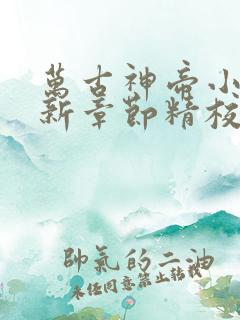 萬古神帝小
新章節精校
帥氣的二油
未經同意禁止轉載